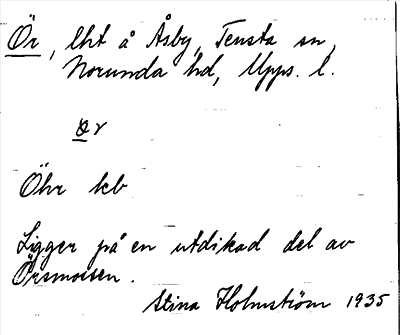 Ör, lht å Åsby, Tensta sn,
Norunda hd, Upps. l.
ør
Öhr kb
Ligger på en utdikad del av
Örsmossen.
Stina Holmström 1935